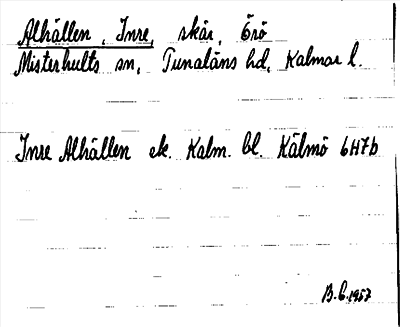 Alhällen, Inre, skär, Örö
Misterhults sn, Tunaläns hd, Kalmar l.
Inre Alhällen ek. Kalm. bl. Kälmö 6H7b
B.C. 1957